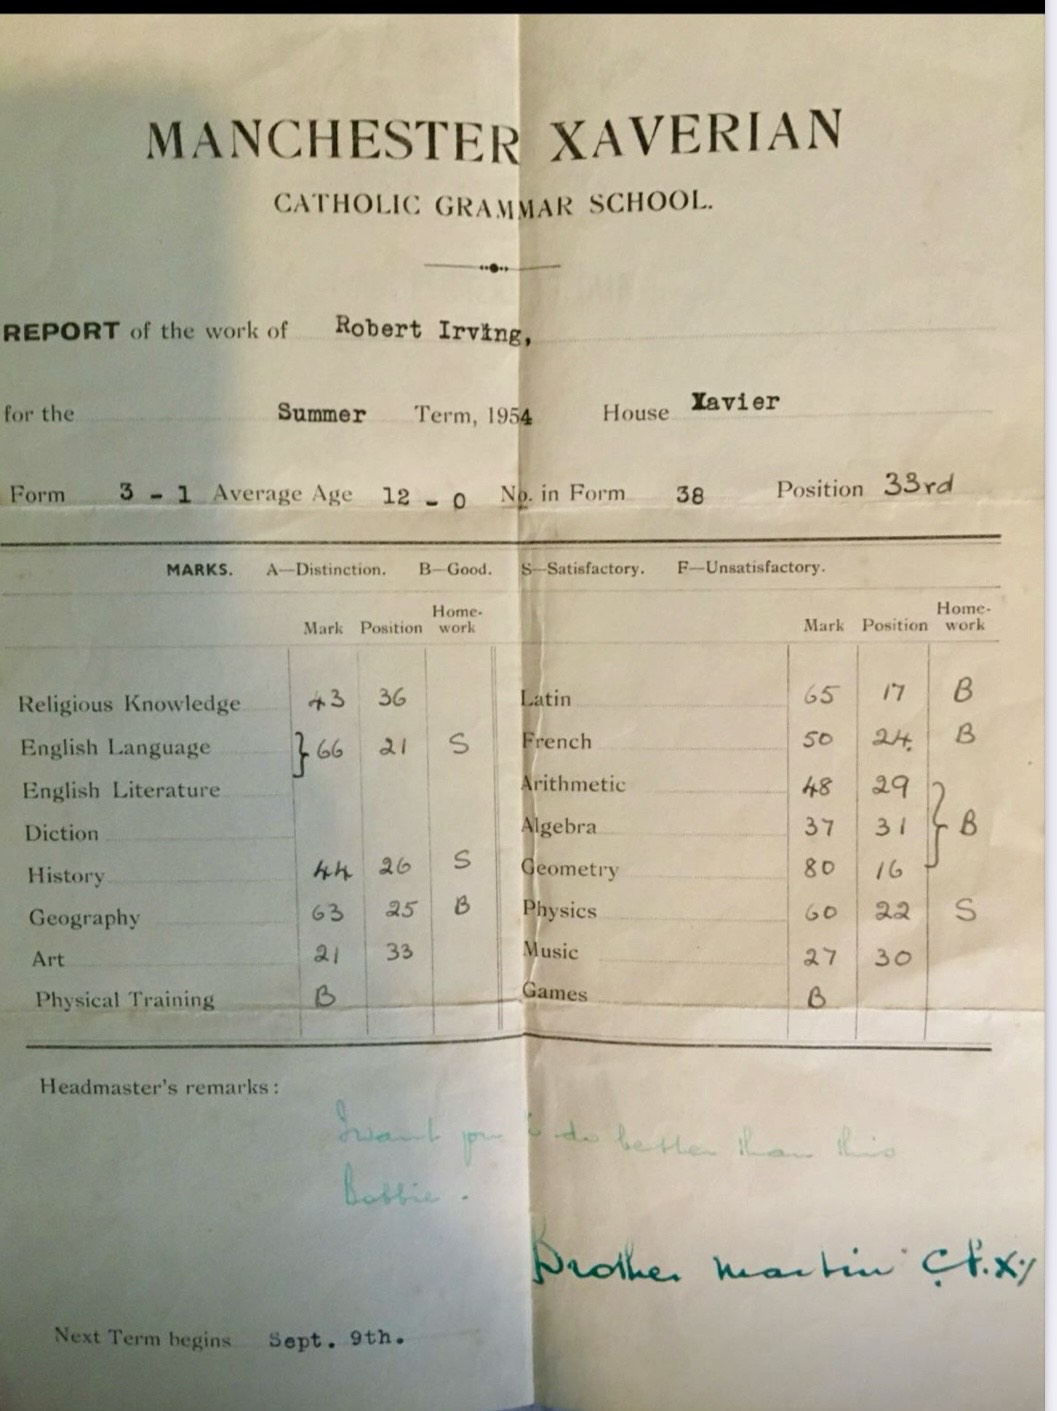 MANCHESTER XAVERIAN
CATHOLIC GRAMMAR SCHOOL.
REPORT of the work of Robert Irving,
for the Summer Term, 1954 House Xavier
Form 3 - 1 Average Age 12 - 0 No. in Form 38 Position 33rd
MARKS. A—Distinction. B—Good. S—Satisfactory. F—Unsatisfactory.
Mark Position Home-work Mark Position Home-work
Religious Knowledge 43 36 Latin 65 17 B
English Language } 66 21 S French 50 24. B
English Literature Arithmetic 48 29
Diction Algebra 37 31 } B
History 44 26 S Geometry 80 16
Geography 63 25 B Physics 60 22 S
Art 21 33 Music 27 30
Physical Training B Games B
Headmaster's remarks:
I want you to do better than this
Bobbie.
Brother Martin C.F.X.
Next Term begins Sept. 9th.